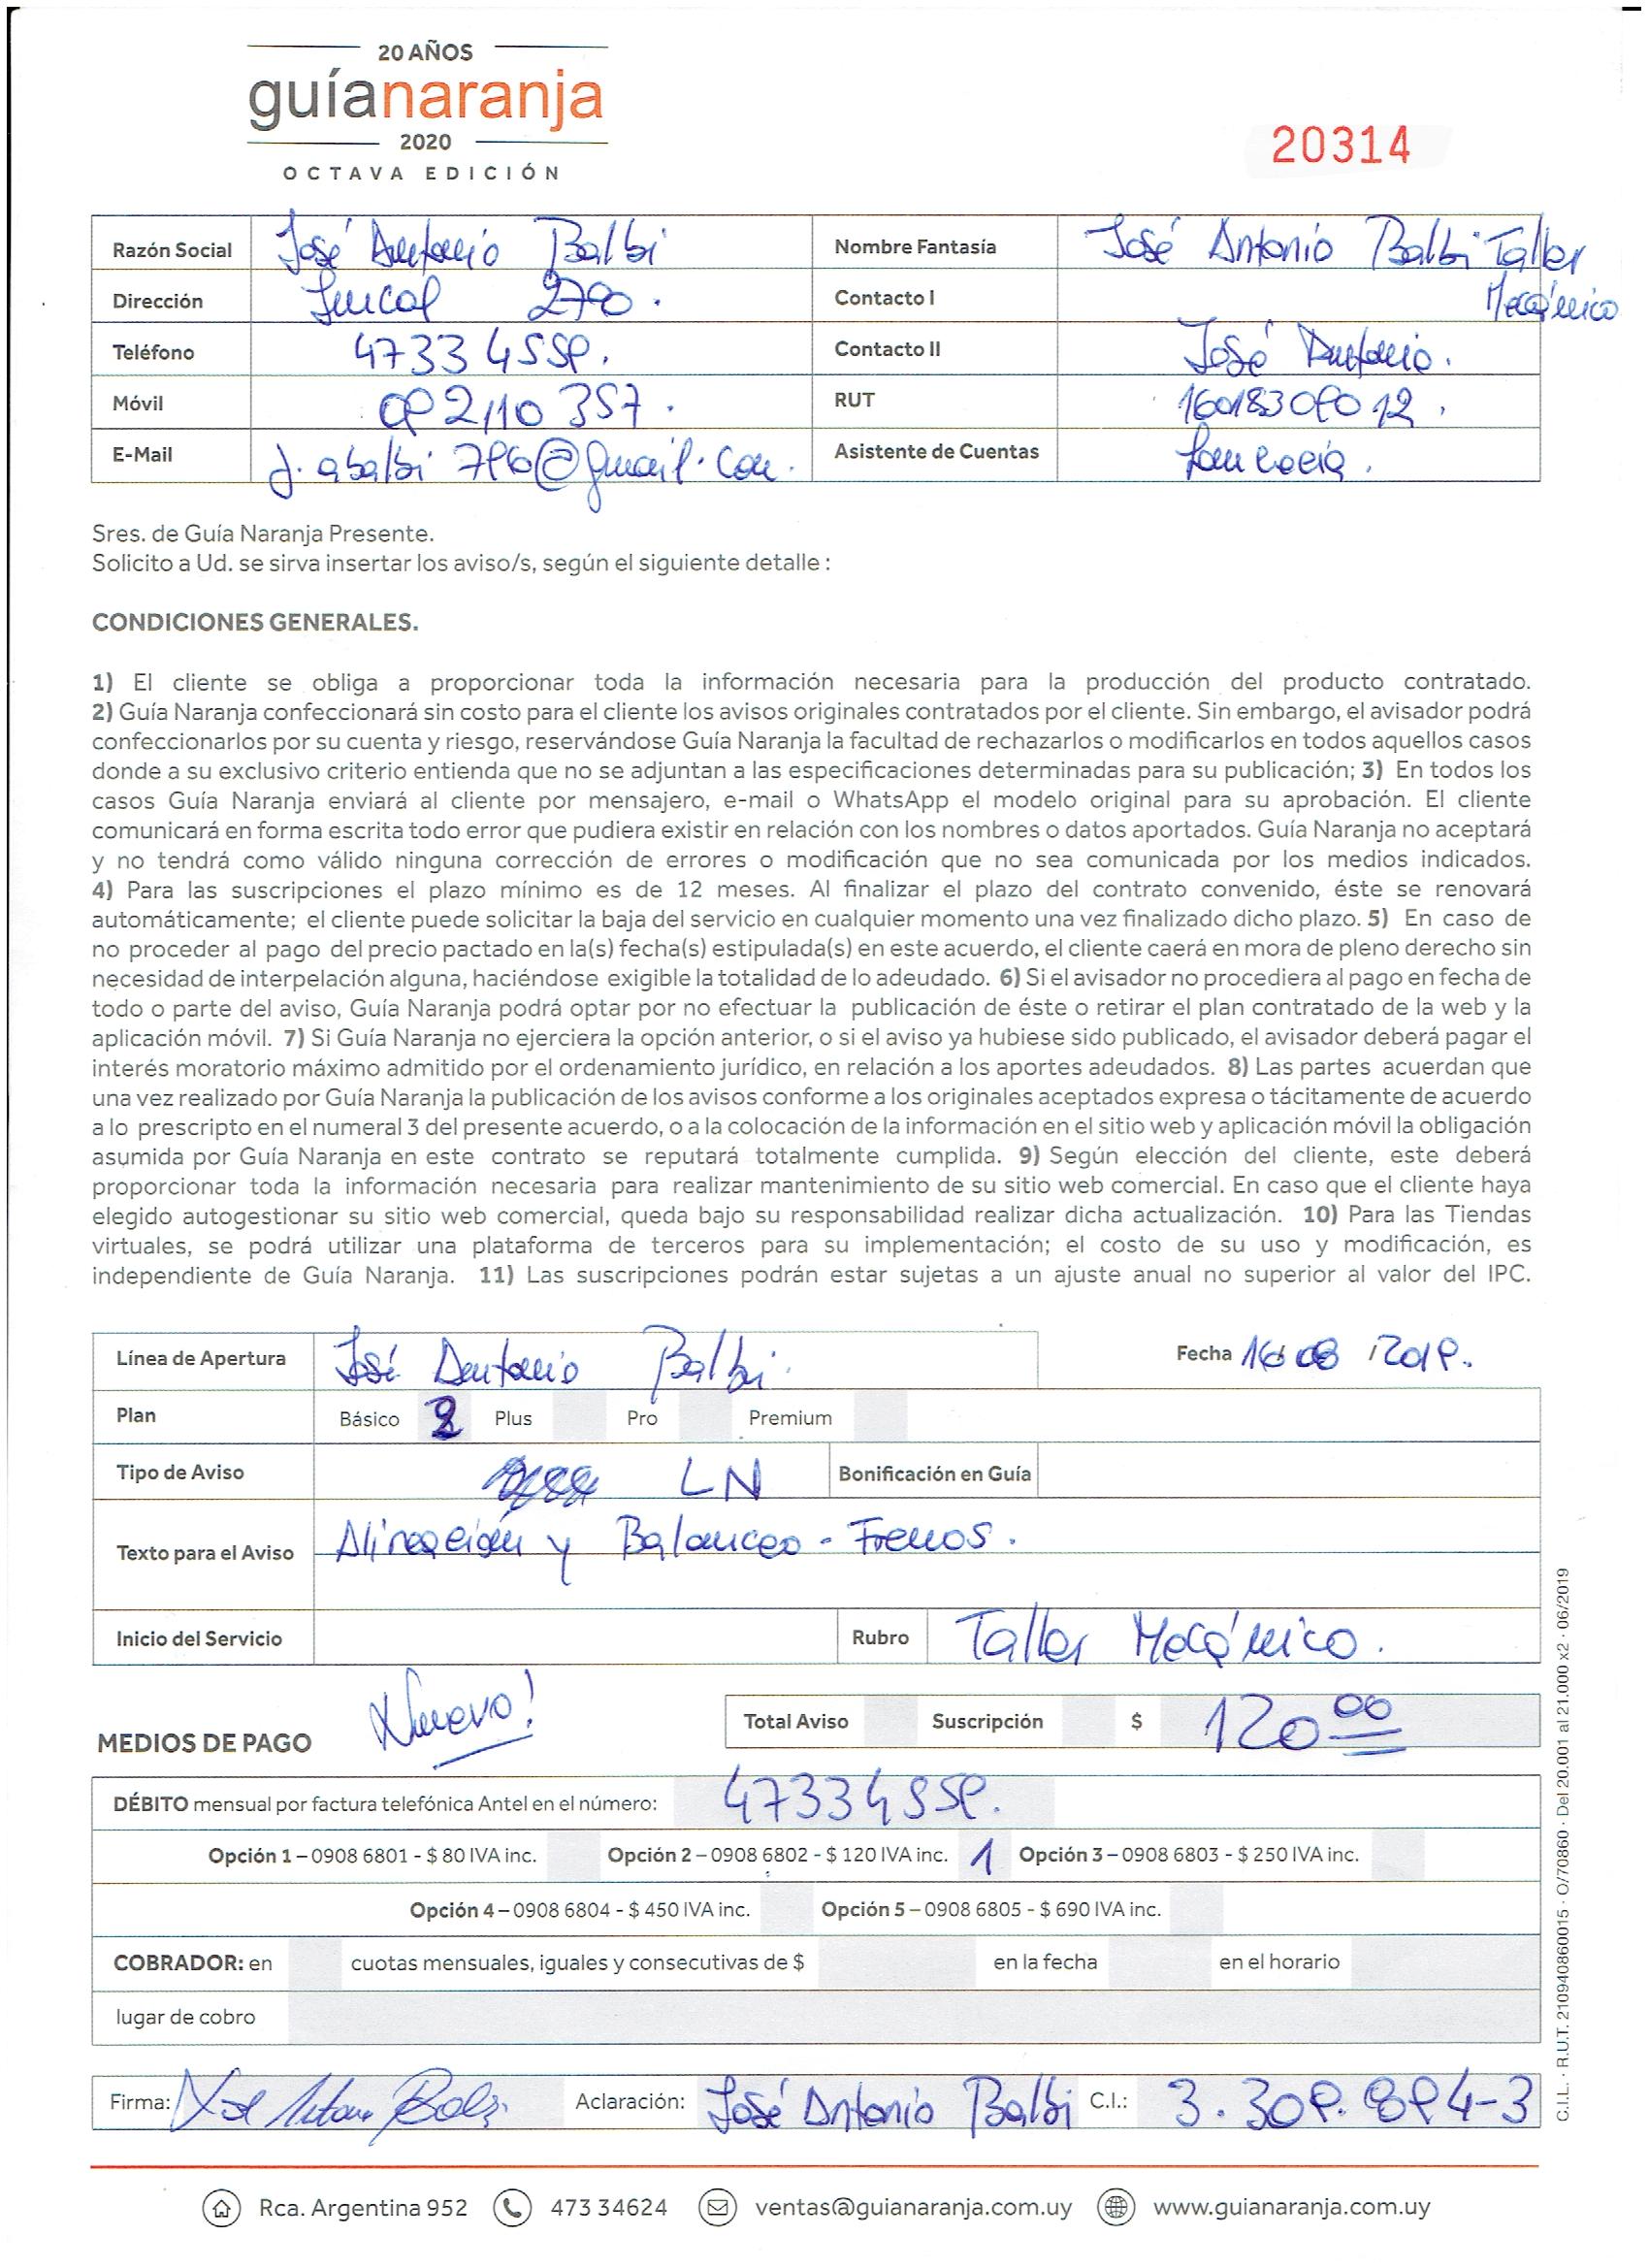 20 AÑOS
guíanaranja
2020
OCTAVA EDICIÓN
20314
Razón Social José Antonio Balbi Nombre Fantasía José Antonio Balbi Taller Mecánico
Dirección 2790. Contacto I
Teléfono 4733 4559. Contacto II José Antonio.
Móvil 092 110 357. RUT 160183090012.
E-Mail j.abalbi796@gmail.com. Asistente de Cuentas
Sres. de Guía Naranja Presente.
Solicito a Ud. se sirva insertar los aviso/s, según el siguiente detalle :
CONDICIONES GENERALES.
1) El cliente se obliga a proporcionar toda la información necesaria para la producción del producto contratado.
2) Guía Naranja confeccionará sin costo para el cliente los avisos originales contratados por el cliente. Sin embargo, el avisador podrá
confeccionarlos por su cuenta y riesgo, reservándose Guía Naranja la facultad de rechazarlos o modificarlos en todos aquellos casos
donde a su exclusivo criterio entienda que no se adjuntan a las especificaciones determinadas para su publicación; 3) En todos los
casos Guía Naranja enviará al cliente por mensajero, e-mail o WhatsApp el modelo original para su aprobación. El cliente
comunicará en forma escrita todo error que pudiera existir en relación con los nombres o datos aportados. Guía Naranja no aceptará
y no tendrá como válido ninguna corrección de errores o modificación que no sea comunicada por los medios indicados.
4) Para las suscripciones el plazo mínimo es de 12 meses. Al finalizar el plazo del contrato convenido, éste se renovará
automáticamente; el cliente puede solicitar la baja del servicio en cualquier momento una vez finalizado dicho plazo. 5) En caso de
no proceder al pago del precio pactado en la(s) fecha(s) estipulada(s) en este acuerdo, el cliente caerá en mora de pleno derecho sin
necesidad de interpelación alguna, haciéndose exigible la totalidad de lo adeudado. 6) Si el avisador no procediera al pago en fecha de
todo o parte del aviso, Guía Naranja podrá optar por no efectuar la publicación de éste o retirar el plan contratado de la web y la
aplicación móvil. 7) Si Guía Naranja no ejerciera la opción anterior, o si el aviso ya hubiese sido publicado, el avisador deberá pagar el
interés moratorio máximo admitido por el ordenamiento jurídico, en relación a los aportes adeudados. 8) Las partes acuerdan que
una vez realizado por Guía Naranja la publicación de los avisos conforme a los originales aceptados expresa o tácitamente de acuerdo
a lo prescripto en el numeral 3 del presente acuerdo, o a la colocación de la información en el sitio web y aplicación móvil la obligación
asumida por Guía Naranja en este contrato se reputará totalmente cumplida. 9) Según elección del cliente, este deberá
proporcionar toda la información necesaria para realizar mantenimiento de su sitio web comercial. En caso que el cliente haya
elegido autogestionar su sitio web comercial, queda bajo su responsabilidad realizar dicha actualización. 10) Para las Tiendas
virtuales, se podrá utilizar una plataforma de terceros para su implementación; el costo de su uso y modificación, es
independiente de Guía Naranja. 11) Las suscripciones podrán estar sujetas a un ajuste anual no superior al valor del IPC.
Línea de Apertura José Antonio Balbi. Fecha 16 08 2019.
Plan Básico 2 Plus Pro Premium
Tipo de Aviso LN Bonificación en Guía
Texto para el Aviso Alineación y Balanceo - Frenos.
Inicio del Servicio Rubro Taller Mecánico.
Nuevo!
MEDIOS DE PAGO Total Aviso Suscripción $ 120 00
DÉBITO mensual por factura telefónica Antel en el número: 47334559.
Opción 1 – 0908 6801 - $ 80 IVA inc. Opción 2 – 0908 6802 - $ 120 IVA inc. 1 Opción 3 – 0908 6803 - $ 250 IVA inc.
Opción 4 – 0908 6804 - $ 450 IVA inc. Opción 5 – 0908 6805 - $ 690 IVA inc.
COBRADOR: en cuotas mensuales, iguales y consecutivas de $ en la fecha en el horario
lugar de cobro
Firma: José Antonio Balbi Aclaración: José Antonio Balbi C.I.: 3.309.894-3
C.I.L. · R.U.T. 210940860015 · O/70860 · Del 20.001 al 21.000 x2 · 06/2019
Rca. Argentina 952 473 34624 ventas@guianaranja.com.uy www.guianaranja.com.uy